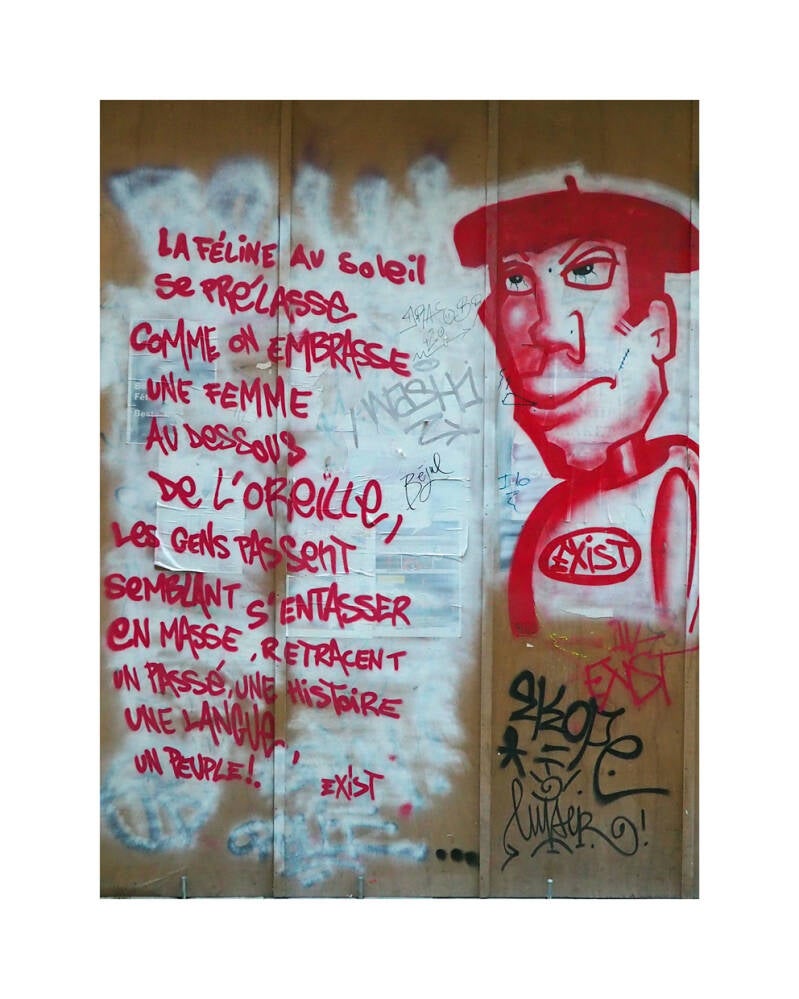 LA FÉLINE AU SOLEIL
SE PRÉLASSE
COMME ON EMBRASSE
UNE FEMME
AU DESSOUS
DE L'OREÏLLE,
LES GENS PASSENT
SEMBLANT S'ENTASSER
EN MASSE, RETRACENT
UN PASSÉ, UNE HISTOIRE
UNE LANGUE,
UN PEUPLE!.
EXIST
WASHI
Béjul
EXIST
EXIST